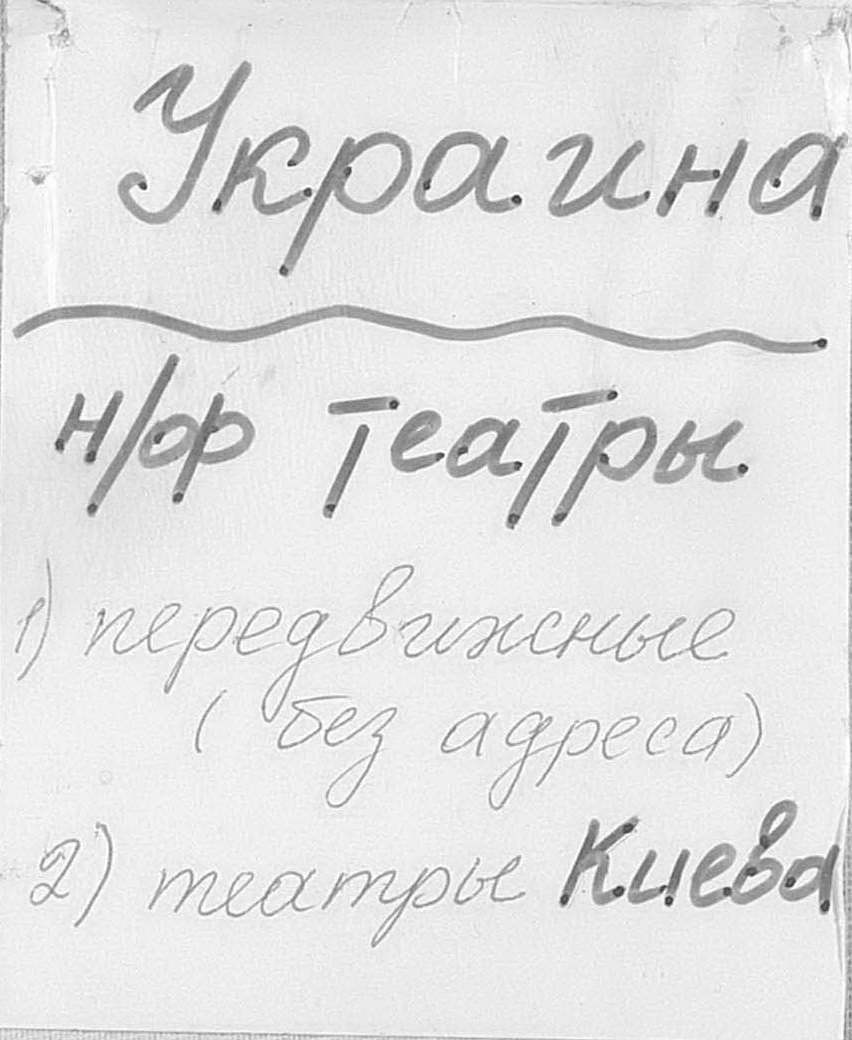 Украина
н/ф театры
1) передвижные
( без адреса)
2) театры Киева